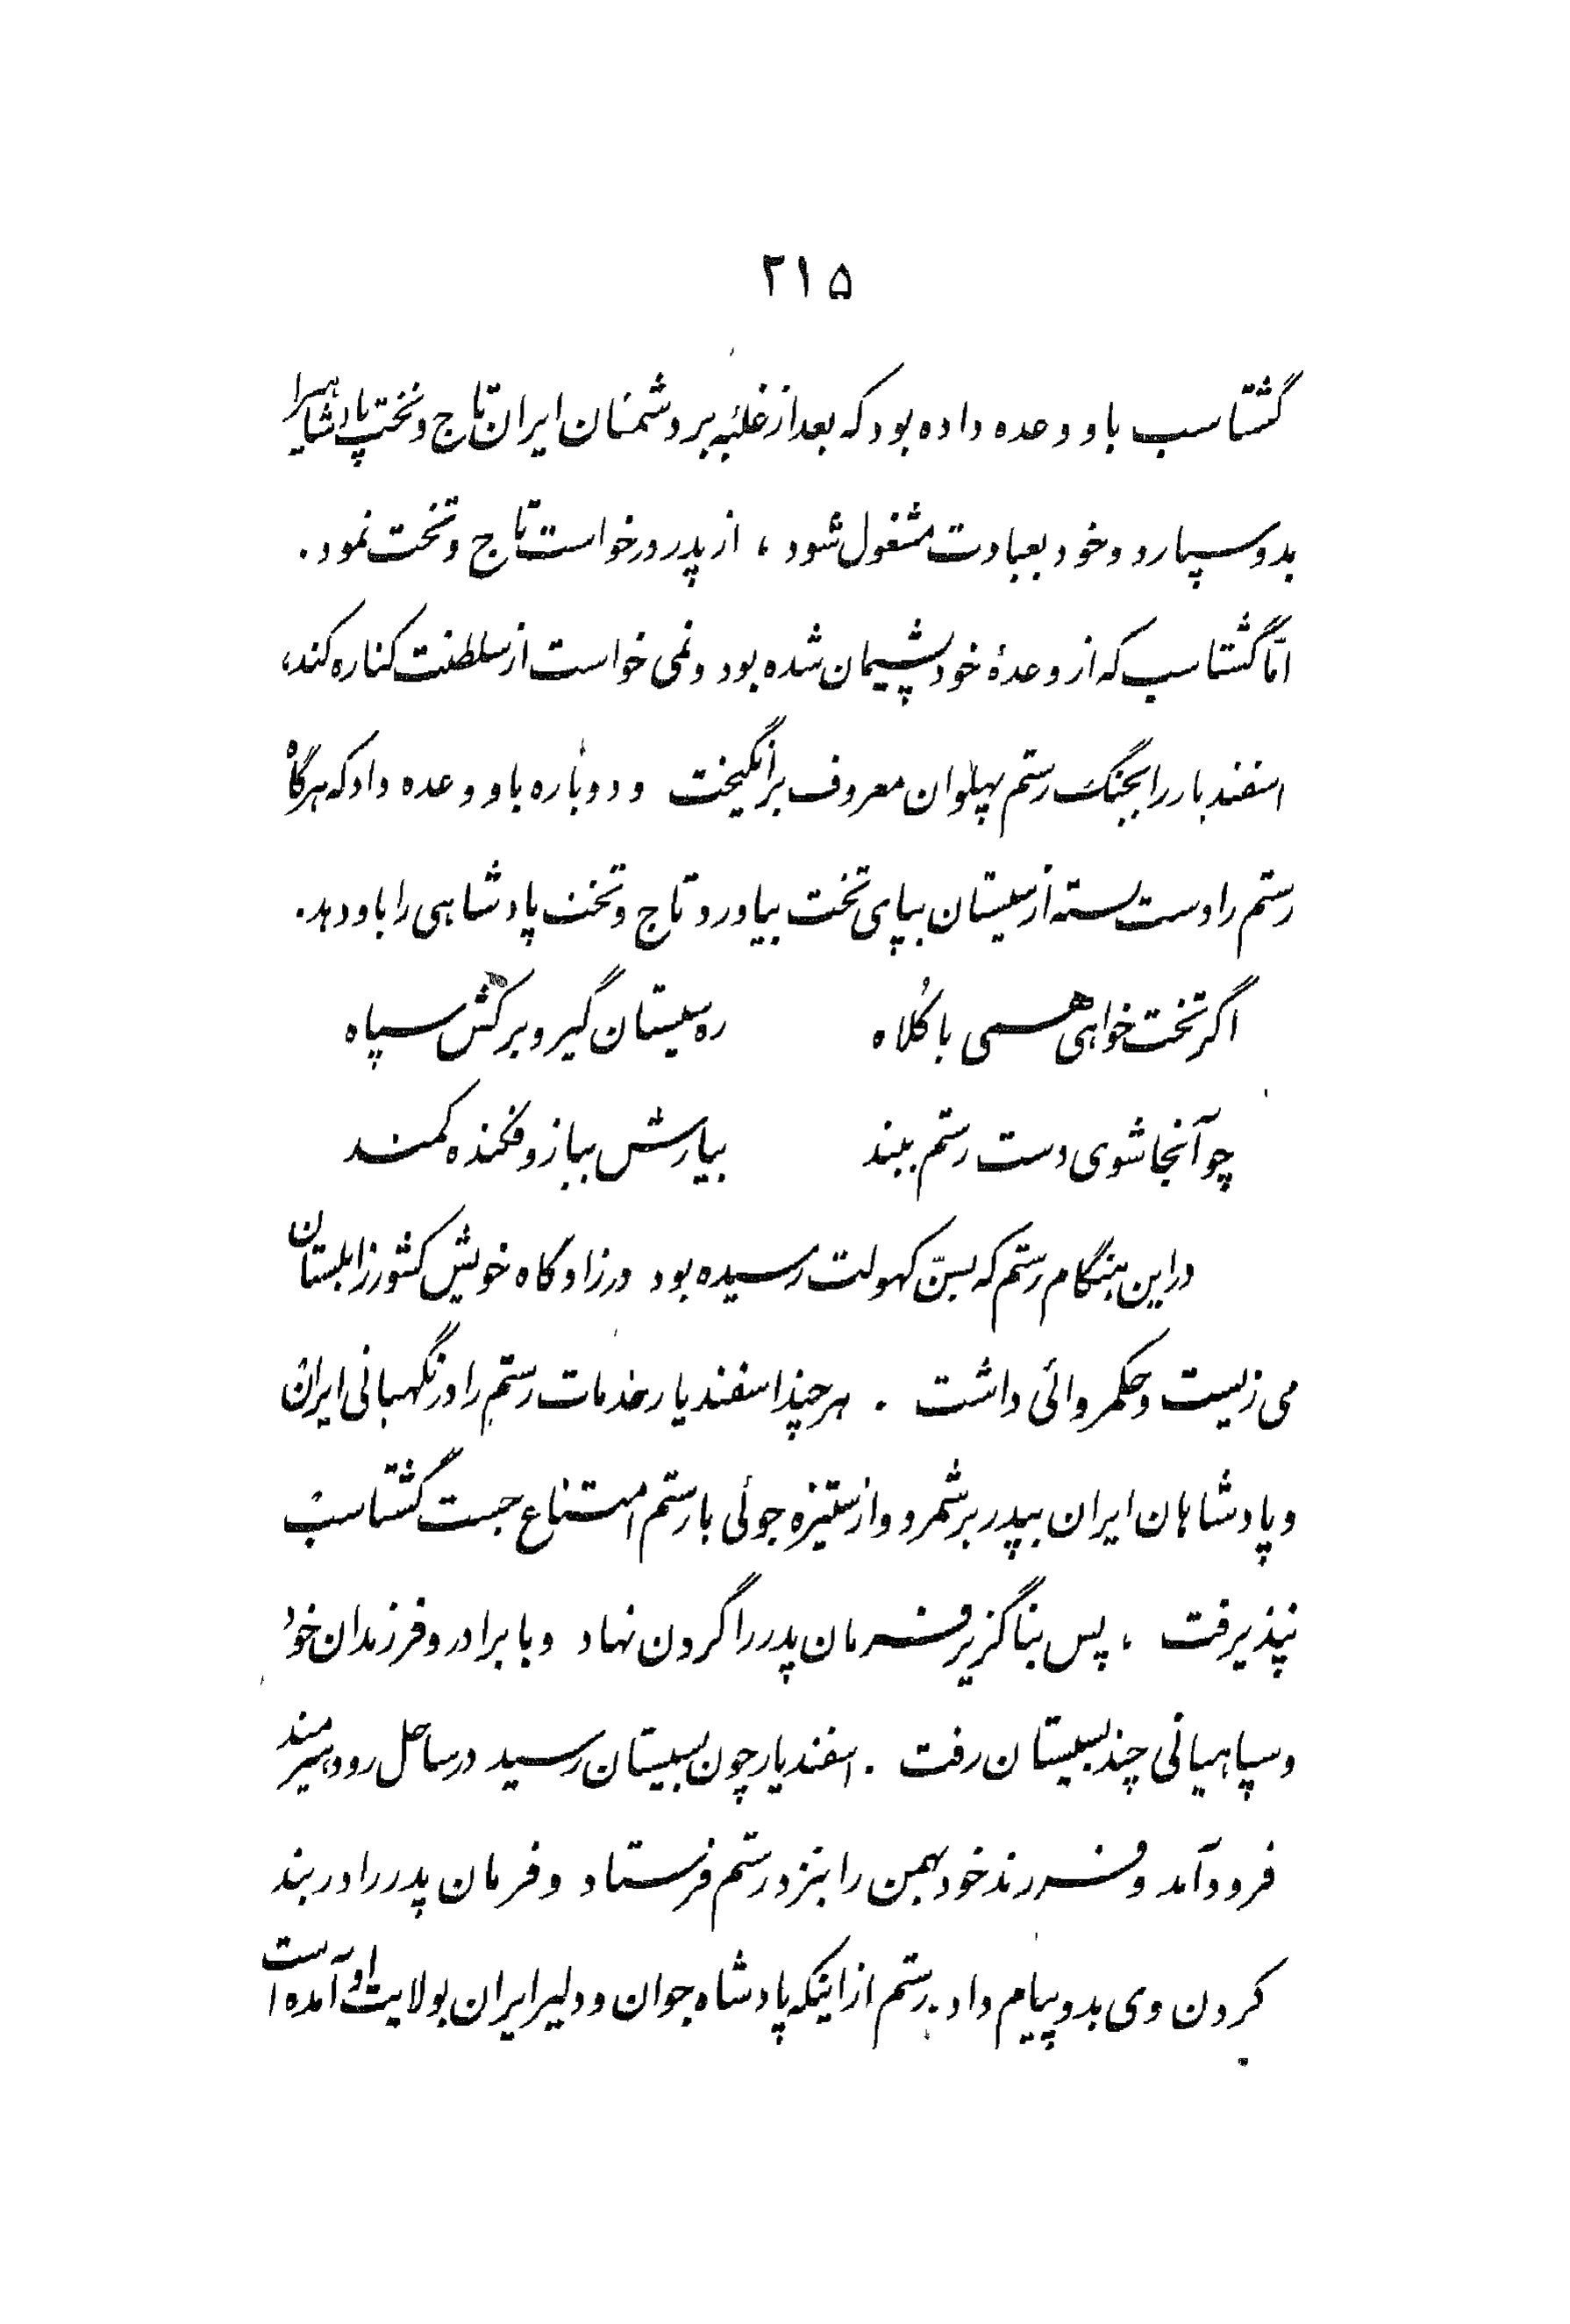 ۲۱۵
گشتاسب باو وعده داده بود که بعد از غلبه بر دشمنان ایران تاج و تخت پادشاهیرا
بدو سپارد و خود بعبادت مشغول شود ، از پدر درخواست تاج و تخت نمود .
امّا گشتاسب که از وعدهٔ خود پشیمان شده بود و نمی خواست از سلطنت کناره کند،
اسفندیار را بجنگ رستم پهلوان معروف برانگیخت و دوباره باو وعده داد که هرگاه
رستم را دست بسته از سیستان بپای تخت بیاورد تاج و تخت پادشاهی را باو دهد .
اگر تخت خواهی همی با کُلاه ره سیستان گیر و برکش سپاه
چو آنجا شوی دست رستم ببند بیارش ببازو فکنده کمند
در این هنگام رستم که بسنّ کهولت رسیده بود در زادگاه خویش کشور زابلستان
می زیست و حکمروائی داشت . هر چند اسفندیار خدمات رستم را در نگهبانی ایران
و پادشاهان ایران بپدر برشمرد و از ستیزه جوئی با رستم امتناع جست گشتاسب
نپذیرفت ، پس بناگزیر فرمان پدر را گردن نهاد و با برادر و فرزندان خود
و سپاهیانی چند بسیستان رفت . اسفندیار چون بسیستان رسید در ساحل رود هیرمند
فرود آمد و فرزند خود بهمن را بنزد رستم فرستاد و فرمان پدر را در بند
کردن وی بدو پیام داد . رستم از اینکه پادشاه جوان و دلیر ایران بولایت او آمده است